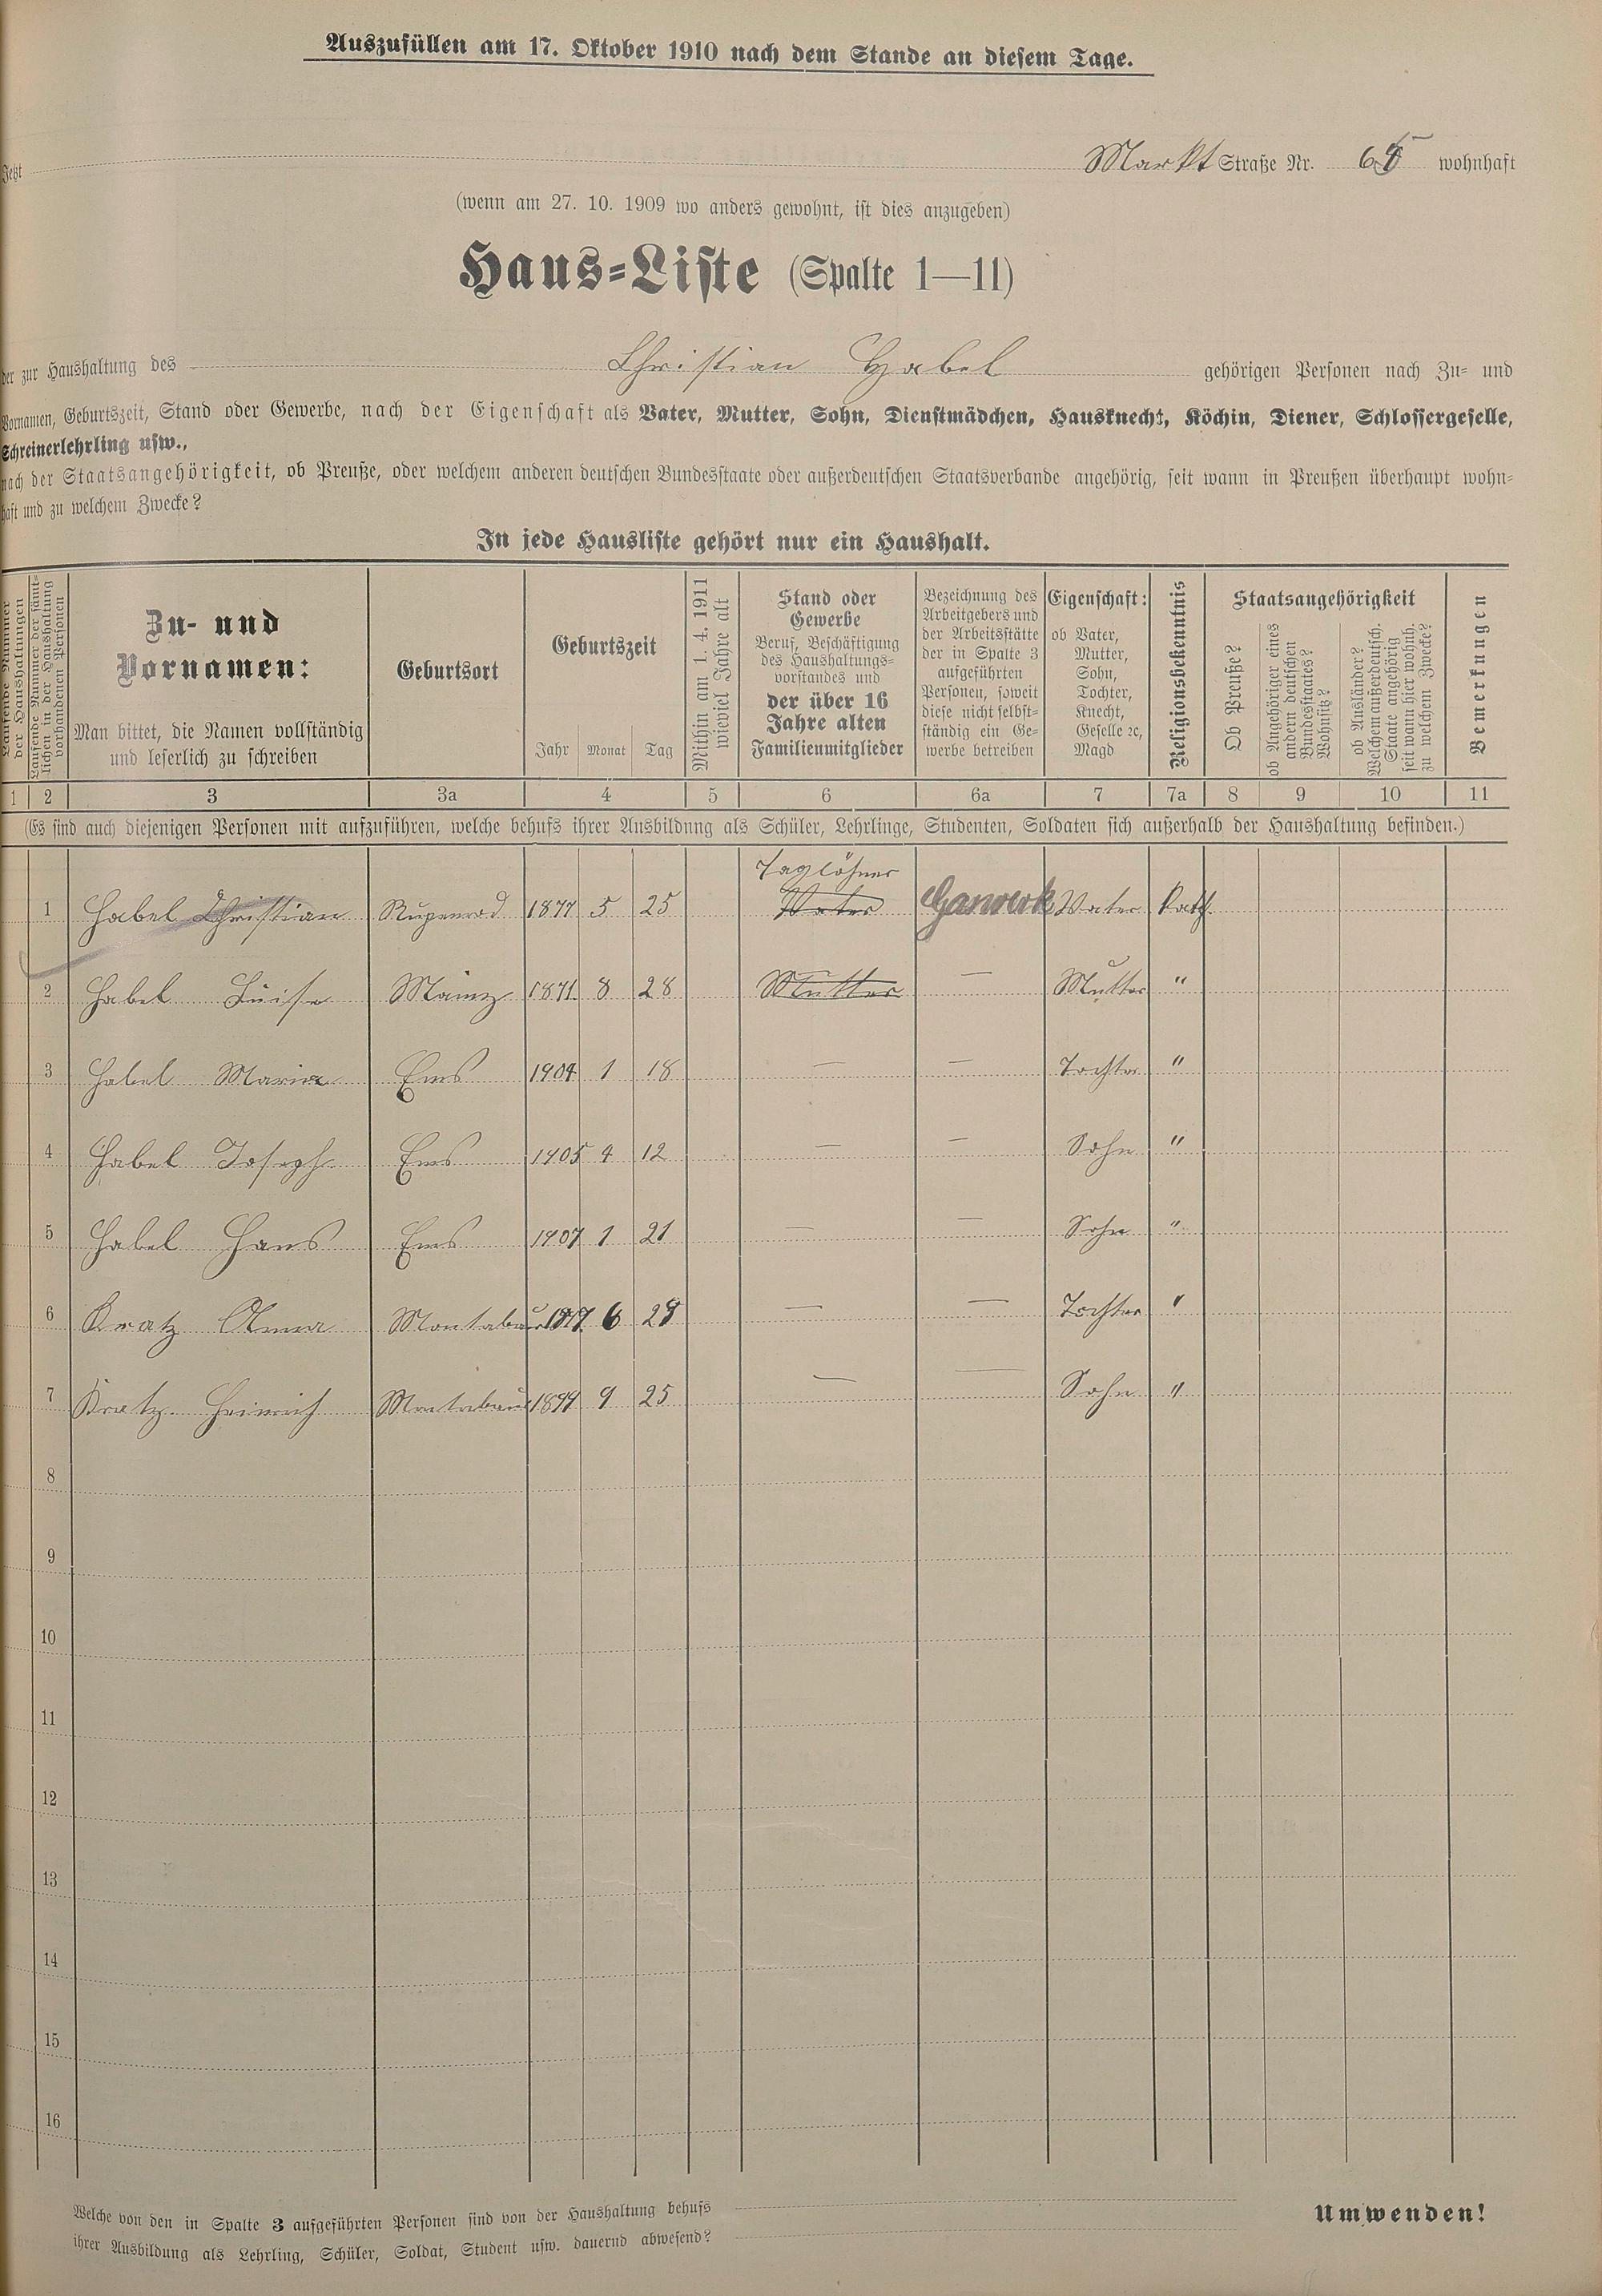 Auszufüllen am 17. Oktober 1910 nach dem Stande an diesem Tage.
Jetzt Markt Straße Nr. 65 wohnhaft
(wenn am 27. 10. 1909 wo anders gewohnt, ist dies anzugeben)
Haus-Liste (Spalte 1—11)
der zur Haushaltung des Christian Habel gehörigen Personen nach Zu- und
Vornamen, Geburtszeit, Stand oder Gewerbe, nach der Eigenschaft als Vater, Mutter, Sohn, Dienstmädchen, Hausknecht, Köchin, Diener, Schlossergeselle,
Schreinerlehrling usw.,
nach der Staatsangehörigkeit, ob Preuße, oder welchem anderen deutschen Bundesstaate oder außerdeutschen Staatsverbande angehörig, seit wann in Preußen überhaupt wohn-
haft und zu welchem Zwecke?
In jede Hausliste gehört nur ein Haushalt.
Laufende Nummer
der Haushaltungen
Laufende Nummer der sämt-
lichen in der Haushaltung
vorhandenen Personen
Zu- und
Vornamen:
Man bittet, die Namen vollständig
und leserlich zu schreiben
Geburtsort
Geburtszeit
Jahr Monat Tag
Mithin am 1. 4. 1911
wieviel Jahre alt
Stand oder
Gewerbe
Beruf, Beschäftigung
des Haushaltungs-
vorstandes und
der über 16
Jahre alten
Familienmitglieder
Bezeichnung des
Arbeitgebers und
der Arbeitsstätte
der in Spalte 3
aufgeführten
Personen, soweit
diese nicht selbst-
ständig ein Ge-
werbe betreiben
Eigenschaft:
ob Vater,
Mutter,
Sohn,
Tochter,
Knecht,
Geselle ec,
Magd
Religionsbekenntnis
Staatsangehörigkeit
Ob Preuße?
ob Angehöriger eines
andern deutschen
Bundesstaates?
Wohnsitz?
ob Ausländer?
Welchem außerdeutsch.
Staate angehörig
seit wann hier wohnh.
zu welchem Zwecke?
Bemerkungen
1 2 3 3a 4 5 6 6a 7 7a 8 9 10 11
(Es sind auch diejenigen Personen mit aufzuführen, welche behufs ihrer Ausbildung als Schüler, Lehrlinge, Studenten, Soldaten sich außerhalb der Haushaltung befinden.)
Taglöhner
1 Habel Christian Rupenrod 1877 5 25 Vater Gaswerk Vater Kath.
2 Habel Luise Mainz 1871 8 28 Mutter — Mutter "
3 Habel Maria Ems 1904 1 18 — — Tochter "
4 Habel Joseph Ems 1905 4 12 — — Sohn "
5 Habel Hans Ems 1907 1 21 — — Sohn "
6 Kratz Anna Montabaur 6 — — Tochter "
7 Kratz Heinrich Montabaur 1899 9 25 — — Sohn "
8
9
10
11
12
13
14
15
16
Welche von den in Spalte 3 aufgeführten Personen sind von der Haushaltung behufs
ihrer Ausbildung als Lehrling, Schüler, Soldat, Student usw. dauernd abwesend?
Umwenden!